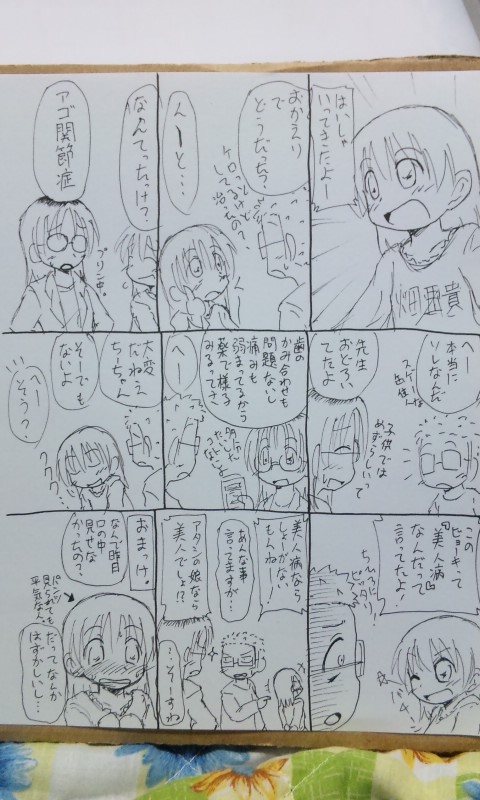 はいしゃ
いってきたよー
畑亜貴
おかえり
で
どうだった?
んーと…
なんてったっけ?
アゴ関節症
へー
本当に
ソレなんだ
子供では
めずらしいって
先生
おどろい
てたよ
歯の
かみ合わせも
問題ないし
痛みも
弱まってるから
薬で様子
みるってさ
へー
大変
だねえ
ちーちゃん
そーでも
ないよ
へー
そう?
ククク
この
ビョーキって
『美人病』
なんだって
言ってたよ!
ちーちゃんに
ピッタリ
美人病なら
しょーがない
もんねー
あんな事
言ってますが…
アタシの娘なら
美人でしょ!?
…そーすね
おまっけ。
なんで昨日
口の中
見せな
かったの?
パンツ
見られても
平気なん
だって なんか
はずかしいし…